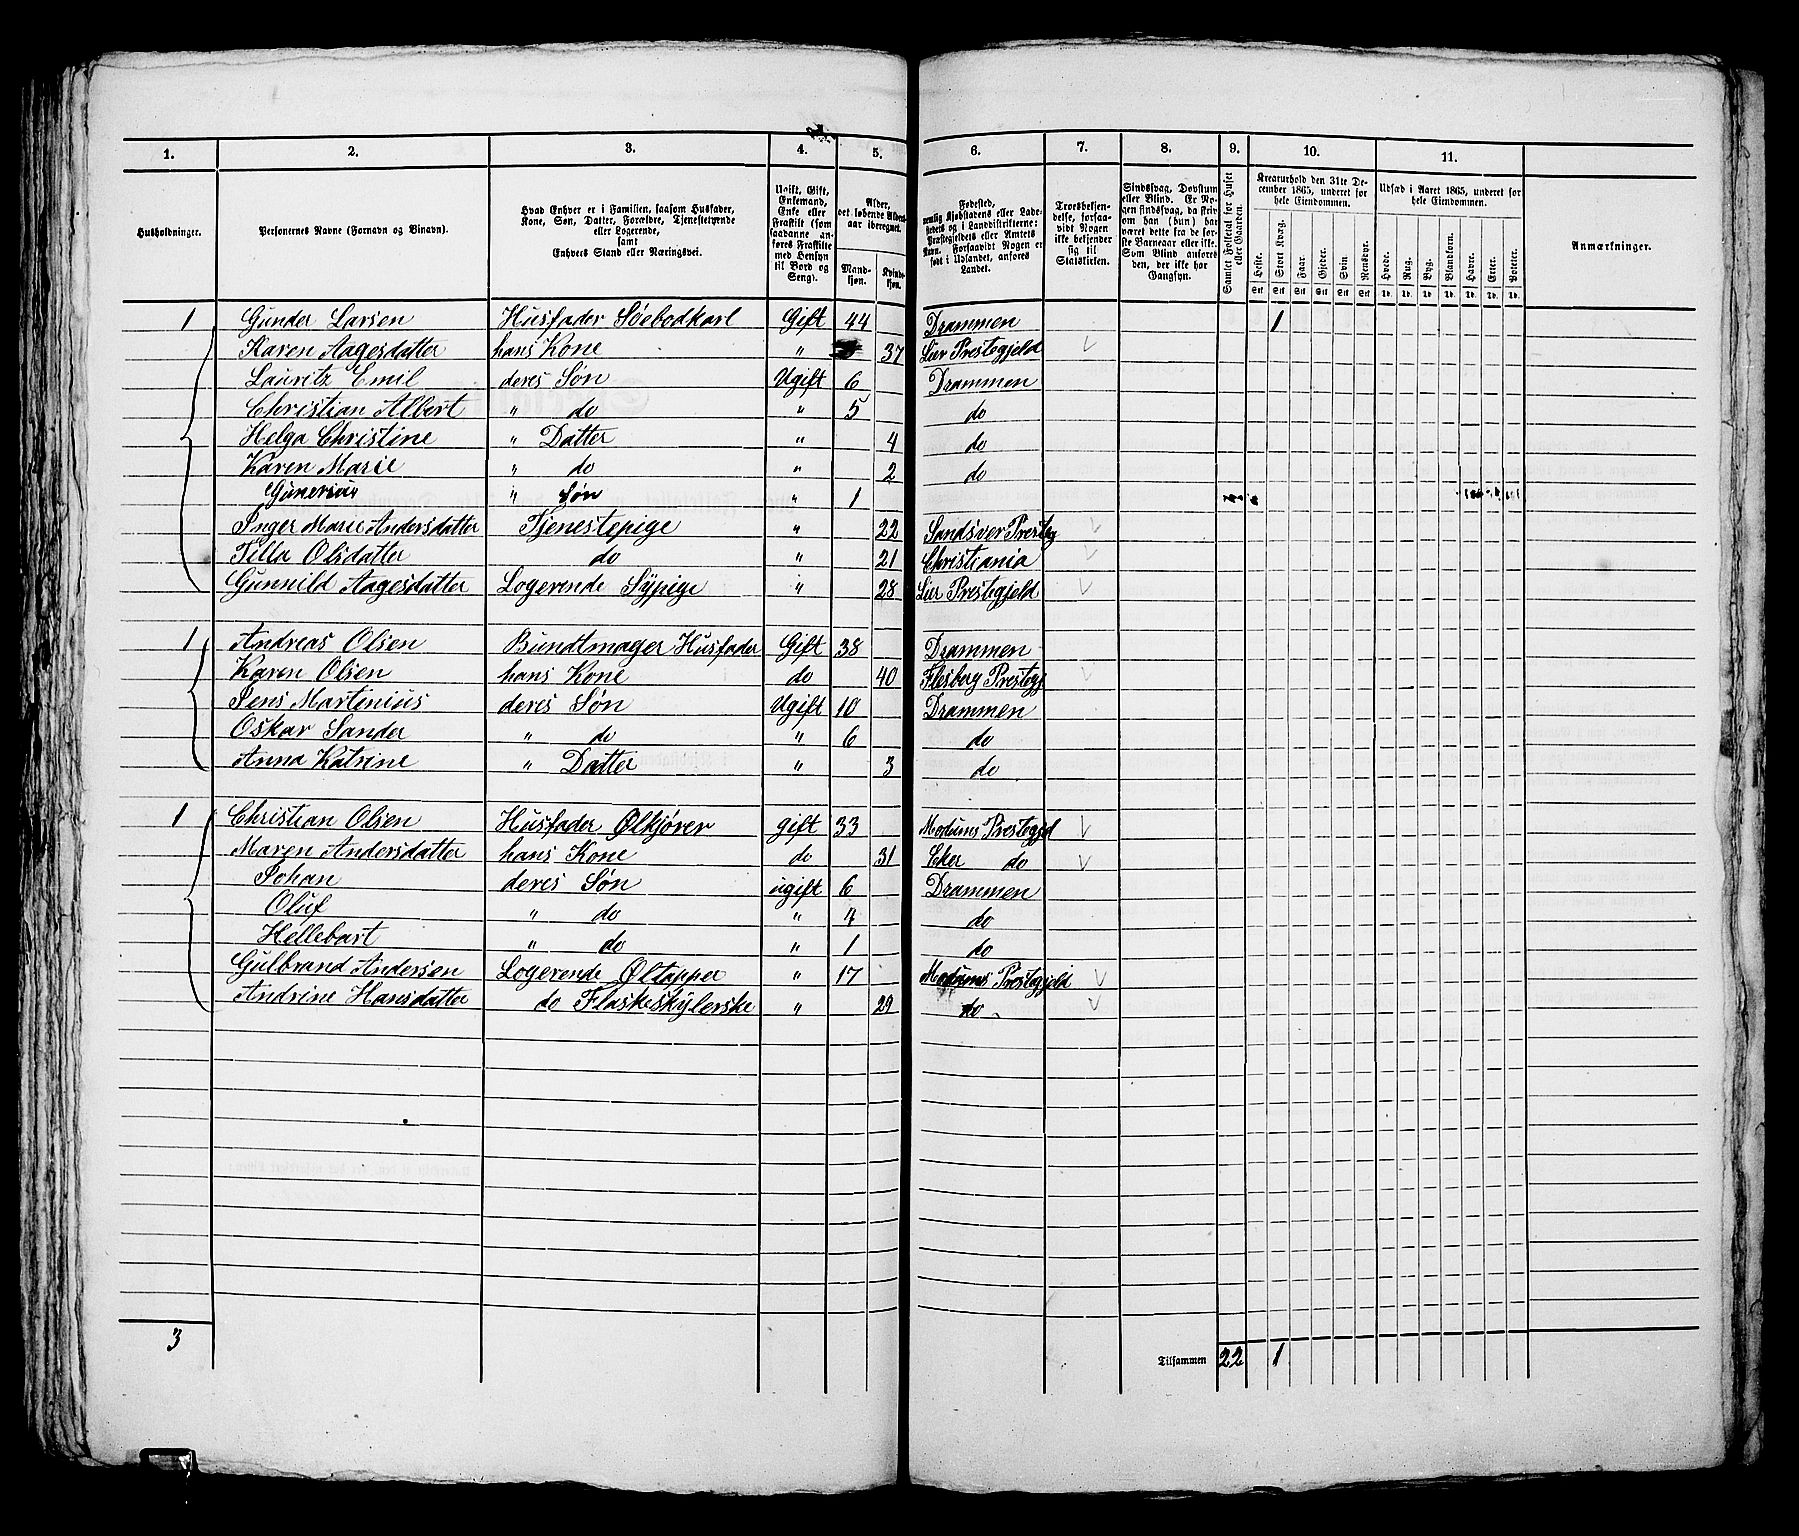 1. 2. 3. 4. 5. 6. 7. 8. 9. 10. 11.
Husholdninger.
Personernes Navne (Fornavn og Binavn).
Hvad Enhver er i Familien, saasom Husfader,
Kone, Søn, Datter, Forældre, Tjenestetyende
eller Logerende,
samt
Enhvers Stand eller Næringsvei.
Ugift, Gift,
Enkemand,
Enke eller
Fraskilt (som
saadanne an-
føres Fraskilte
med Hensyn
til Bord og
Seng).
Alder,
det løbende Alders-
aar iberegnet.
Mand-
kjøn.
Kvinde-
kjøn.
Fødested,
nemlig Kjøbstadens eller Lade-
stedets og i Landdistrikterne:
Præstegjeldets eller Amtets
Navn. Forsaavidt Nogen er
født i Udlandet, anføres
Landet.
Troesbekjen-
delse, forsaa-
vidt Nogen
ikke bekjender
sig til
Statskirken.
Sindssvag, Døvstum
eller Blind. Er No-
gen sindssvag, da skrives, om
han (hun) har
været dette fra de før-
ste Barneaar eller ikke.
Som Blind anføres
den, der ikke har
Gangsyn.
Samlet Folketal for Huset
eller Gaarden.
Kreaturhold den 31te De-
cember 1865, underet for
hele Eiendommen.
Heste. Stort Kvæg. Faar. Gjeder. Svin. Rensdyr.
Stk Stk Stk Stk Stk Stk
Udsæd i Aaret 1865, underet for
hele Eiendommen.
Hvede. Rug. Byg. Blandkorn. Havre. Erter. Poteter.
Td. Td. Td. Td. Td. Td. Td.
Anmærkninger.
1 Gunder Larsen Husfader Søebodkarl Gift 44 Drammen 1
Karen Aagesdatter hans Kone " 37 Lier Prestegjeld
Lauritz Emil deres Søn Ugift 6 Drammen
Christian Albert " do " 5 do
Helga Christine " Datter " 4 do
Karen Marie " do " 2 do
Gunerius " Søn " 1
Inger Marie Andersdatter Tjenestepige " 22 Sandsver Presteg
Tilla Olsdatter do " 21 Christiania
Gunnild Aagesdatter Logerende Sypige " 28 Lier Prestegjeld
1 Andreas Olsen Bundtmager Husfader Gift 38 Drammen
Karen Olsen hans Kone do 40 Flesberg Prestegj
Jens Martinius deres Søn Ugift 10 Drammen
Oskar Sander " do " 6 do
Anna Katrine " Datter " 3 do
1 Christian Olsen Husfader Ølkjører gift 33 Modums Prestegjd
Maren Andersdatter hans Kone do 31 Eker do
Johan deres Søn ugift 6 Drammen
Oluf " do " 4 do
Hellebart " do " 1 do
Gulbrand Andersen Logerende Øltapper " 17 Modums Prestegjeld
Andrine Hansdatter do Flaskeskylerske " 29 do
3
Tilsammen 22 1